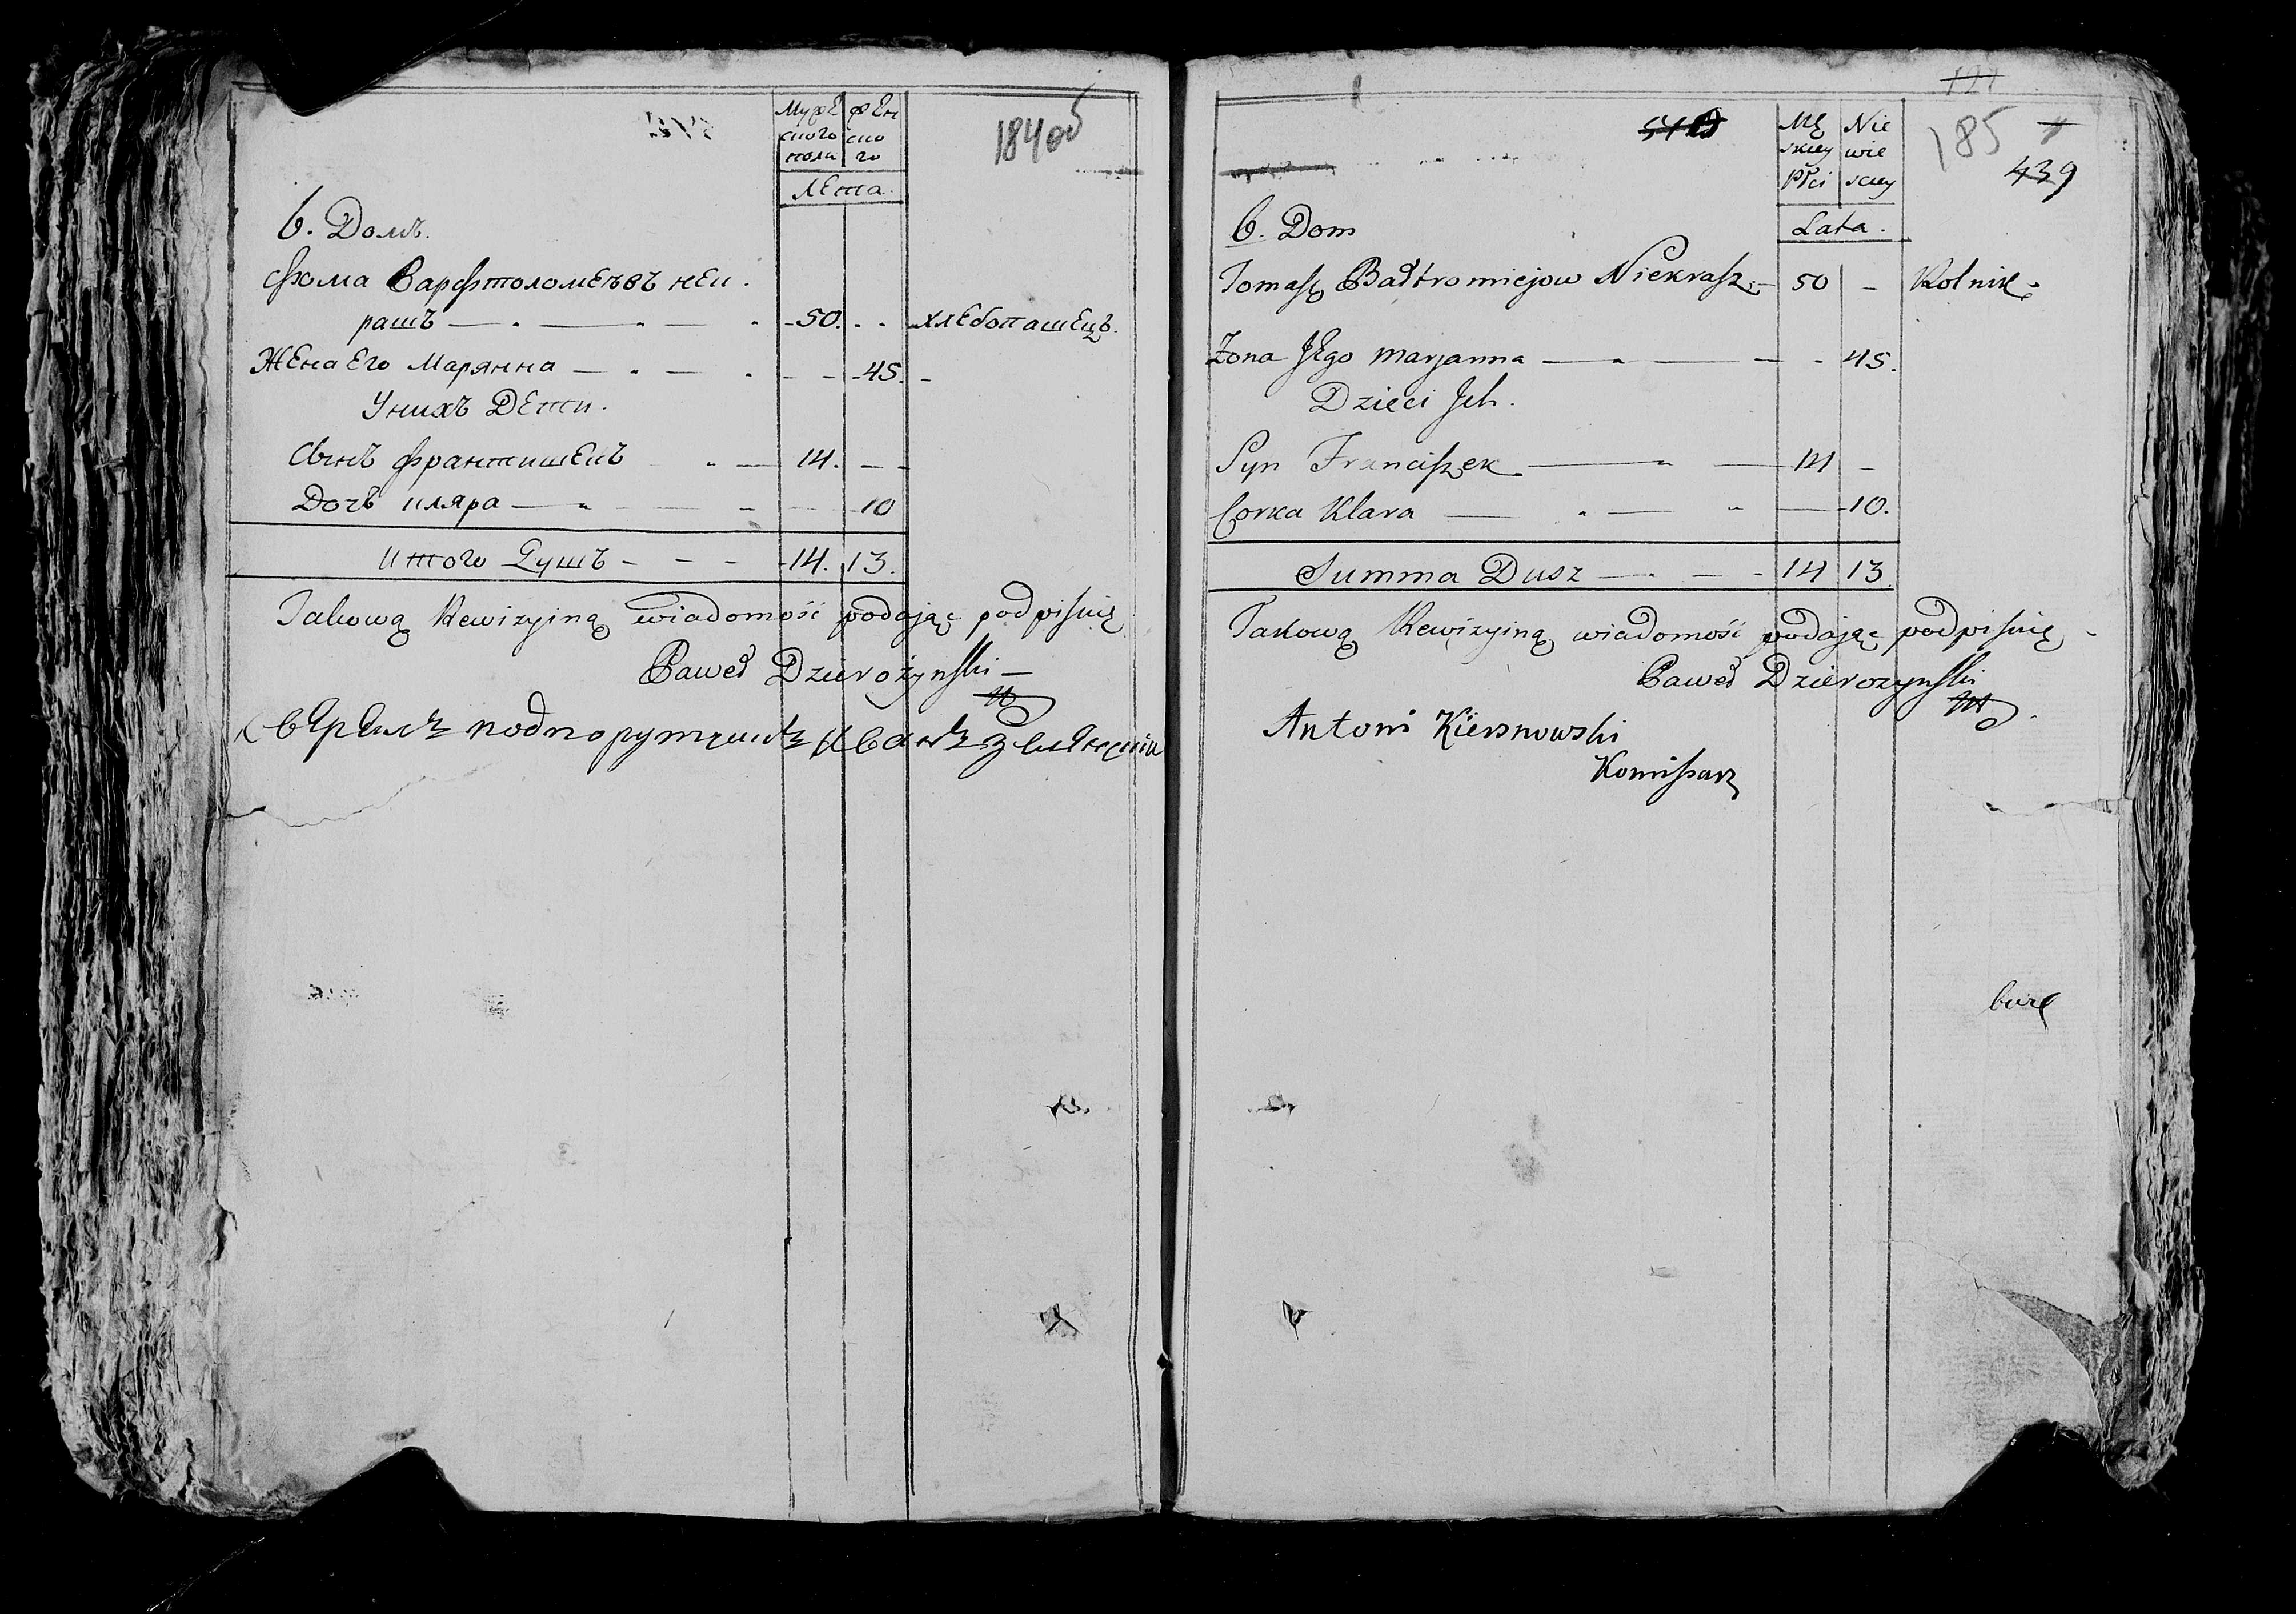 Мужескаго пола
Женскаго
184 об
Лета.
6. Домъ.
Фома Варфтоломеевъ нек.
рашъ — 50. хлебопашецъ.
Жена Его Марянна — 45.
У нихъ Дети.
Сынъ Франтишекъ — 14.
Дочъ Кляра — 10
Итого Душъ - - - 14. 13.
Takową Rewizyiną wiadomość podając podpisuię
Paweł Dzierożynski —
Верилъ подпорутчикъ Иванъ
127
5419
Mę skiey Płci
Nie wie skiey
185
439
Lata.
6. Dom
Tomasz Bałtromiejow Niekrasz — 50 — Rolnik
Żona Jego Maryanna — 45.
Dzieci Jch.
Syn Franciszek — 14 —
Corka Klara — 10.
Summa Dusz — 14 13.
Takową Rewizyiną wiadomość podając podpisuię
Paweł Dzierozynski
Antoni Kiersnowski
Komissarz